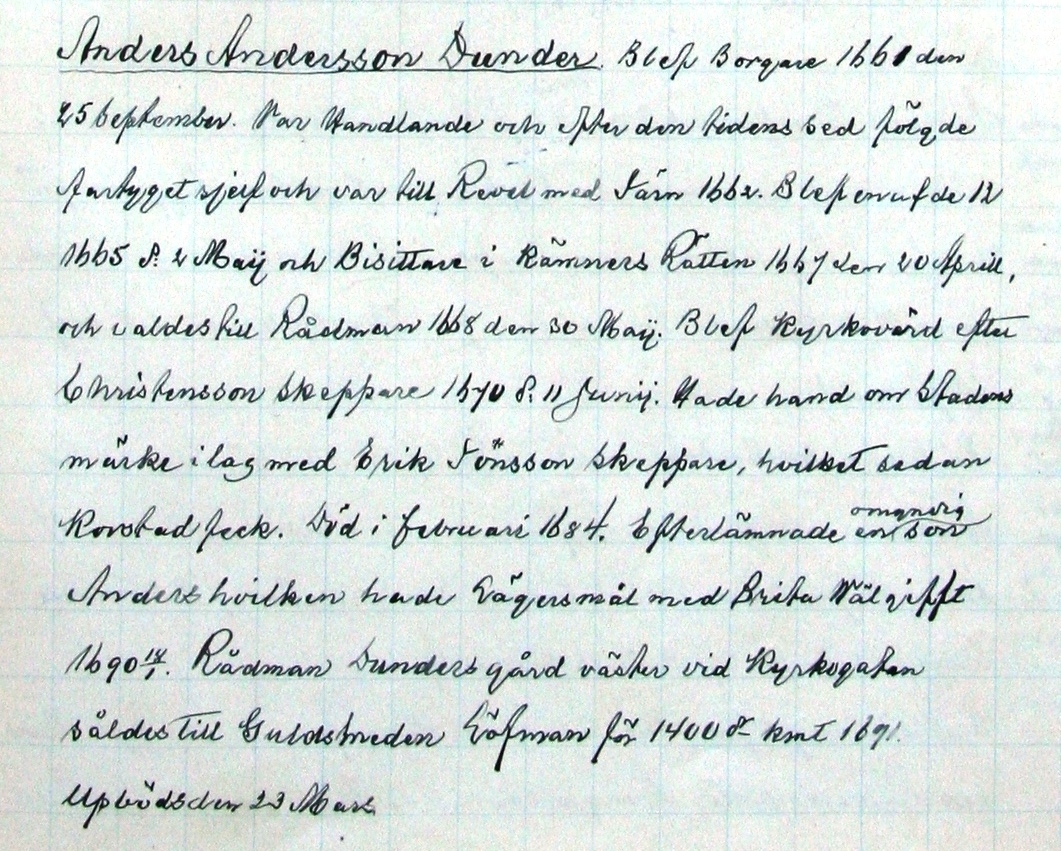 Anders Andersson Dunder. Blef Borgare 1661 den
25 September. Var Handlande och efter den tidens sed följde
fartyget sjelf och var till Revel med Järn 1662. Blef en af de 12
1665 d. 2 Maij och Bisittare i Kämners Rätten 1667 den 20 Aprill,
och valdes till Rådman 1668 den 30 Maij. Blef Kyrkovärd efter
Christensson Skeppare 1670 d. 11 Junij. Hade hand om Stadens
märke i lag med Erik Jönsson Skeppare, hvilket sedan
Korstad feck. Död i februari 1684. Efterlämnade en omyndig son
Anders hvilken hade Lägersmål med Brita Wälgifft
1690 14/1. Rådman Dunders gård väster vid Kyrkogatan
såldes till Guldsmeden Löfman för 1400 dr kmt 1691.
Upböds den 23 Mars